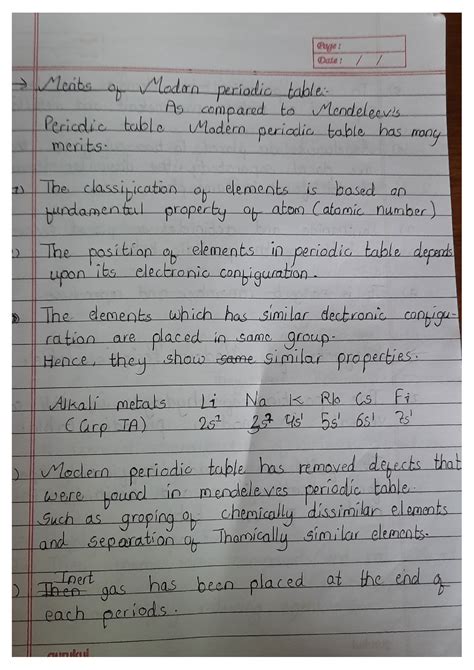 Page :
Date : / /
→ Merits of Modern periodic table:-
As compared to Mendeleev's
Periodic table Modern periodic table has many
merits.
1) The classification of elements is based on
fundamental property of atom (atomic number)
) The position of elements in periodic table depends
upon its electronic configuration.
3) The elements which has similar electronic configu-
ration are placed in same group.
Hence, they show same similar properties.
Alkali metals Li Na K Rb Cs Fi
(Grp IA) 2s¹ 3s¹ 4s¹ 5s¹ 6s¹ 7s¹
) Modern periodic table has removed defects that
were found in mendeleves periodic table.
Such as groping of chemically dissimilar elements
and separation of Thamically similar elements.
Inert
) Then gas has been placed at the end of
each periods.